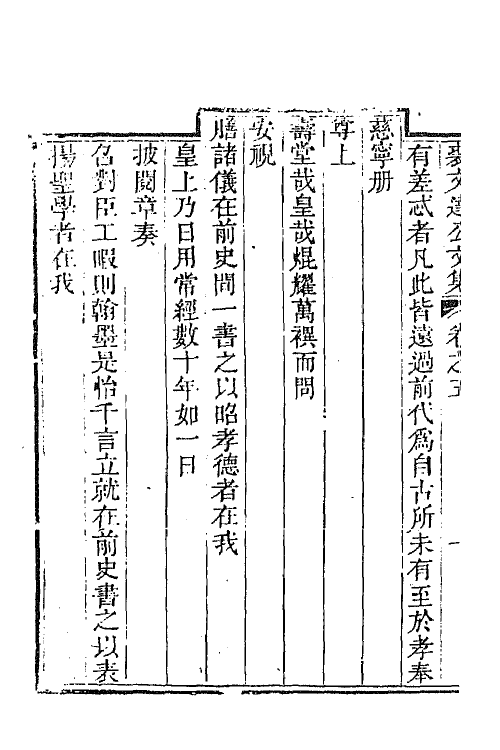 裘文達公文集 卷之五 一
有差忒者凡此皆遠過前代爲自古所未有至於孝奉
慈寧册
尊上
壽堂哉皇哉焜耀萬禩而問
安視
膳諸儀在前史間一書之以昭孝德者在我
皇上乃日用常經數十年如一日
披閱章奏
召對臣工暇則翰墨是怡千言立就在前史書之以表
揚聖學者在我